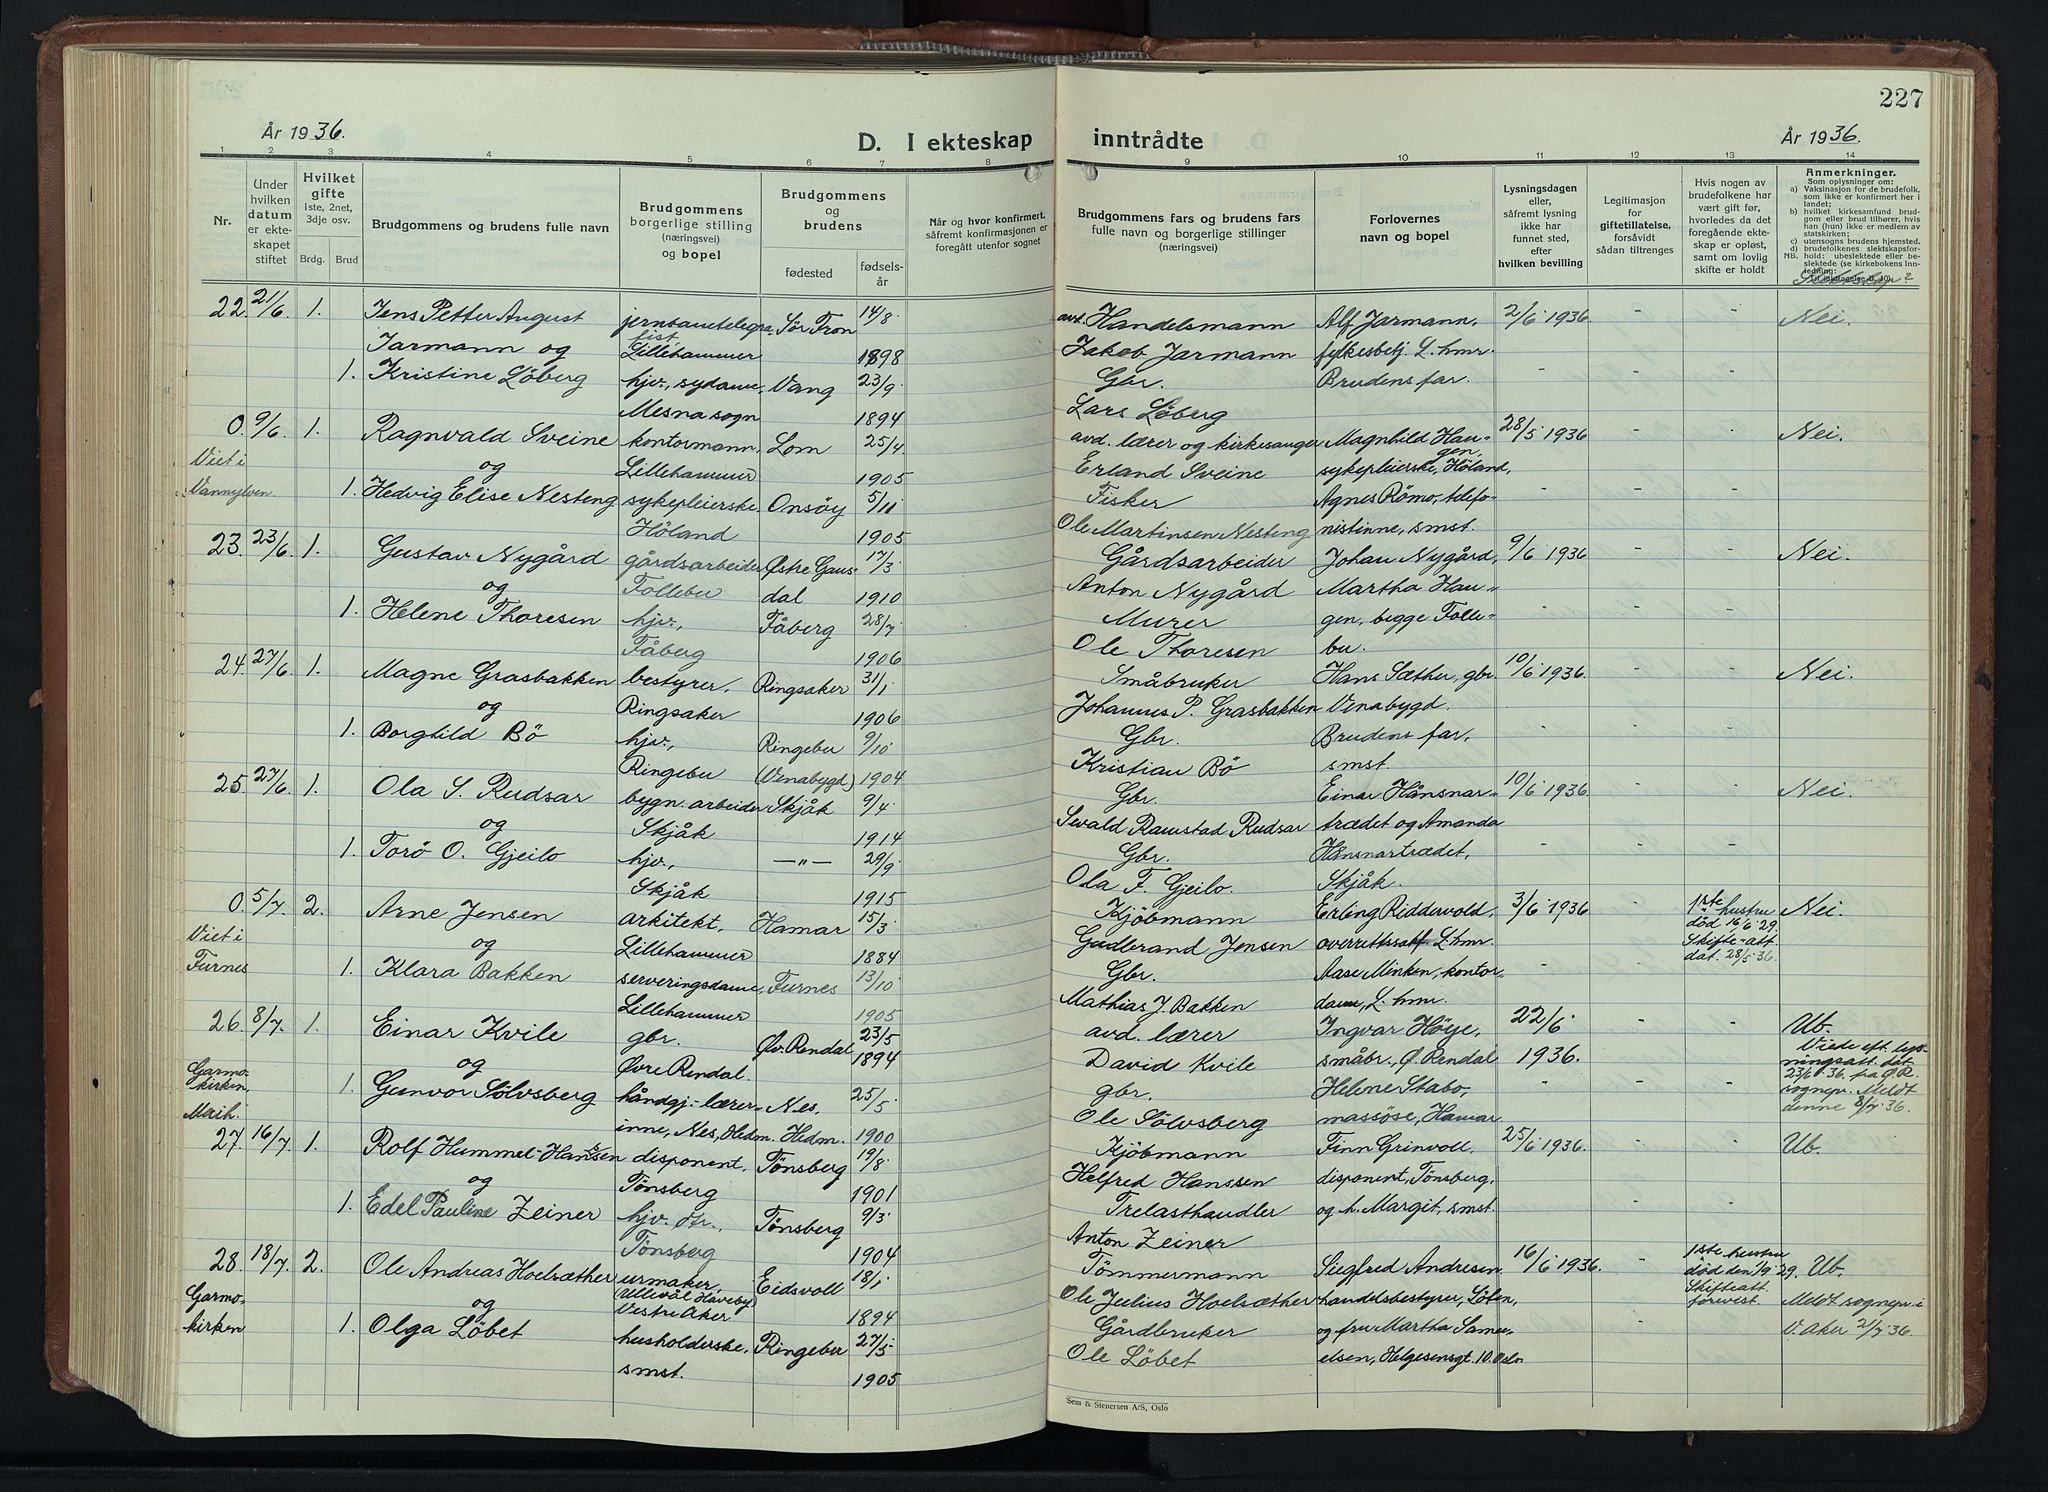 227
År 1936.
D. I ekteskap inntrådte
År 1936.
1 2 3 4 5 6 7 8 9 10 11 12 13 14
Nr.
Under hvilken datum er ekteskapet stiftet
Hvilket gifte 1ste, 2net, 3dje osv.
Brdg. Brud
Brudgommens og brudens fulle navn
Brudgommens borgerlige stilling (næringsvei) og bopel
Brudgommens og brudens
fødested
fødselsår
Når og hvor konfirmert, såfremt konfirmasjonen er foregått utenfor sognet
Brudgommens fars og brudens fars fulle navn og borgerlige stillinger (næringsvei)
Forlovernes navn og bopel
Lysningsdagen eller, såfremt lysning ikke har funnet sted, efter hvilken bevilling
Legitimasjon for giftetillatelse, forsåvidt sådan tiltrenges
Hvis nogen av brudefolkene har vært gift før, hvorledes da det foregående ekteskap er opløst, samt om lovlig skifte er holdt
Anmerkninger.
Som oplysninger om:
a) Vaksinasjon for de brudefolk, som ikke er konfirmert her i landet;
b) hvilket kirkesamfund brudgom eller brud tilhører, hvis han (hun) ikke er medlem av statskirken;
c) utensogns brudens hjemsted.
d) brudefolkenes slektskapsforhold: ubeslektede eller beslektede (se kirkebokens innledning:
22. 21/6 1. Jens Petter August jernbanetelegra- Sør Fron 14/8 avd. Handelsmann Alf Jarmann, 2/6 1936. - - Nei.
Jarmann og fist, Lillehammer 1898 Jakob Jarmann fylkesbetj. L.hmr.
1. Kristine Löberg hjv., sydame, Vang 23/9 Gbr. Brudens far. - - -
Mesna sogn 1894 Lars Löberg
0. 9/6. 1. Ragnvald Sveine kontormann, Lom 25/4 avd. lærer og kirkesanger Magnhild Hau- 28/5 1936 - - Nei.
Viet i og Lillehammer 1905 Erland Sveine gen, sykepleierske, Höland,
Vannylven 1. Hedvig Elise Nesteng sykepleierske, Onsöy 5/11 Fisker Agnes Römo, telefo- - - -
Höland 1905 Ole Martinsen Nesteng nistinne, smst.
23. 23/6 1. Gustav Nygård gårdsarbeider Østre Gaus- 17/3 Gårdsarbeider Johan Nygård, 9/6 1936 - - Nei.
og Follebu dal 1910 Anton Nygård Martha Hau-
1. Helene Thoresen hjv., Fåberg 28/7 Murer gen, begge Folle- - - -
Fåberg 1906 Ole Thoresen bu.
24. 27/6 1. Magne Grasbakken bestyrer, Ringsaker 31/1 Småbruker Hans Sæther, gbr. 10/6 1936. - - Nei.
og Ringsaker 1906 Johannes P. Grasbakken Venabygd.
1. Borghild Bö hjv., Ringebu 9/10 Gbr. Brudens far, - - -
Ringebu (Venabygd) 1904 Kristian Bö smst.
25. 27/6 1. Ola S. Rudsar bygn. arbeider Skjåk 9/4 Gbr. Einar Hånsnar- 10/6 1936. - - Nei.
og Skjåk 1914 Sevald Ramstad Rudsar trædet og Amanda
1. Torö O. Gjeilo hjv., —"— 29/9 Gbr. Hånsnartrædet, - - -
Skjåk 1915 Ola F. Gjeilo. Skjåk.
0. 5/7. 2. Arne Jensen arkitekt, Hamar 15/3 Kjöbmann Erling Riddervold, 3/6 1936 - 1ste hustru Nei.
Viet i og Lillehammer 1884 Gudbrand Jensen overrettssakf. L.hmr. død 16/6 29.
Furnes 1. Klara Bakken serveringsdame, Furnes 13/10 Gbr. Aase Minken, kontor- - - Skifte-att. dat. 28/5 36.
Lillehammer 1905 Mathias J. Bakken dame, L.hmr.
26. 8/7. 1. Einar Kvile gbr. Øv. Rendal 23/5 avd. lærer Ingvar Höye, 22/6 - - Ub.
og Øvre Rendal. 1894 David Kvile småbr., Ø. Rendal 1936. Viede eft. lys-
Garmo- kirken, 1. Gunvor Sölvsberg håndgj.-lærer- Nes, 25/5 gbr. Helene Stabo, - - - ningsatt. dat. 23/6 36. fra Ø.R.
Maih. inne, Nes, Hedm. Hedm. 1900 Ole Sölvsberg massöse, Hamar sognepr. Meldt denne 8/7 36.
27. 16/7 1. Rolf Hummel-Hanssen disponent, Tönsberg 19/8 Kjöbmann Finn Grinvoll, 25/6 1936. - - Ub.
og Tönsberg 1901 Helfred Hanssen disponent, Tönsberg,
1. Edel Pauline Zeiner hjv. dtr. Tönsberg 9/3 Trelasthandler og h. Margit, smst. - - -
Tönsberg 1904 Anton Zeiner
28. 18/7. 2. Ole Andreas Hoelsæther urmaker, Eidsvoll 18/1 Tömmermann Siegfred Andresen 16/6 1936. - 1ste hustru død den 1/9 29. Ub.
Garmo- og (Ullevål Haveby) Vestre Aker 1894 Ole Julius Hoelsæther handelsbestyrer, Löten, Skifteatt. forevist. Meldt sognepr. i
kirken 1. Olga Löbet husholderske, Ringebu 27/5 Gårdbruker og fru Martha Samu- V. Aker 21/7 36.
smst. 1905 Ole Löbet elsen, Helgesensgt. 10. Oslo
Sem & Stenersen A/S, Oslo